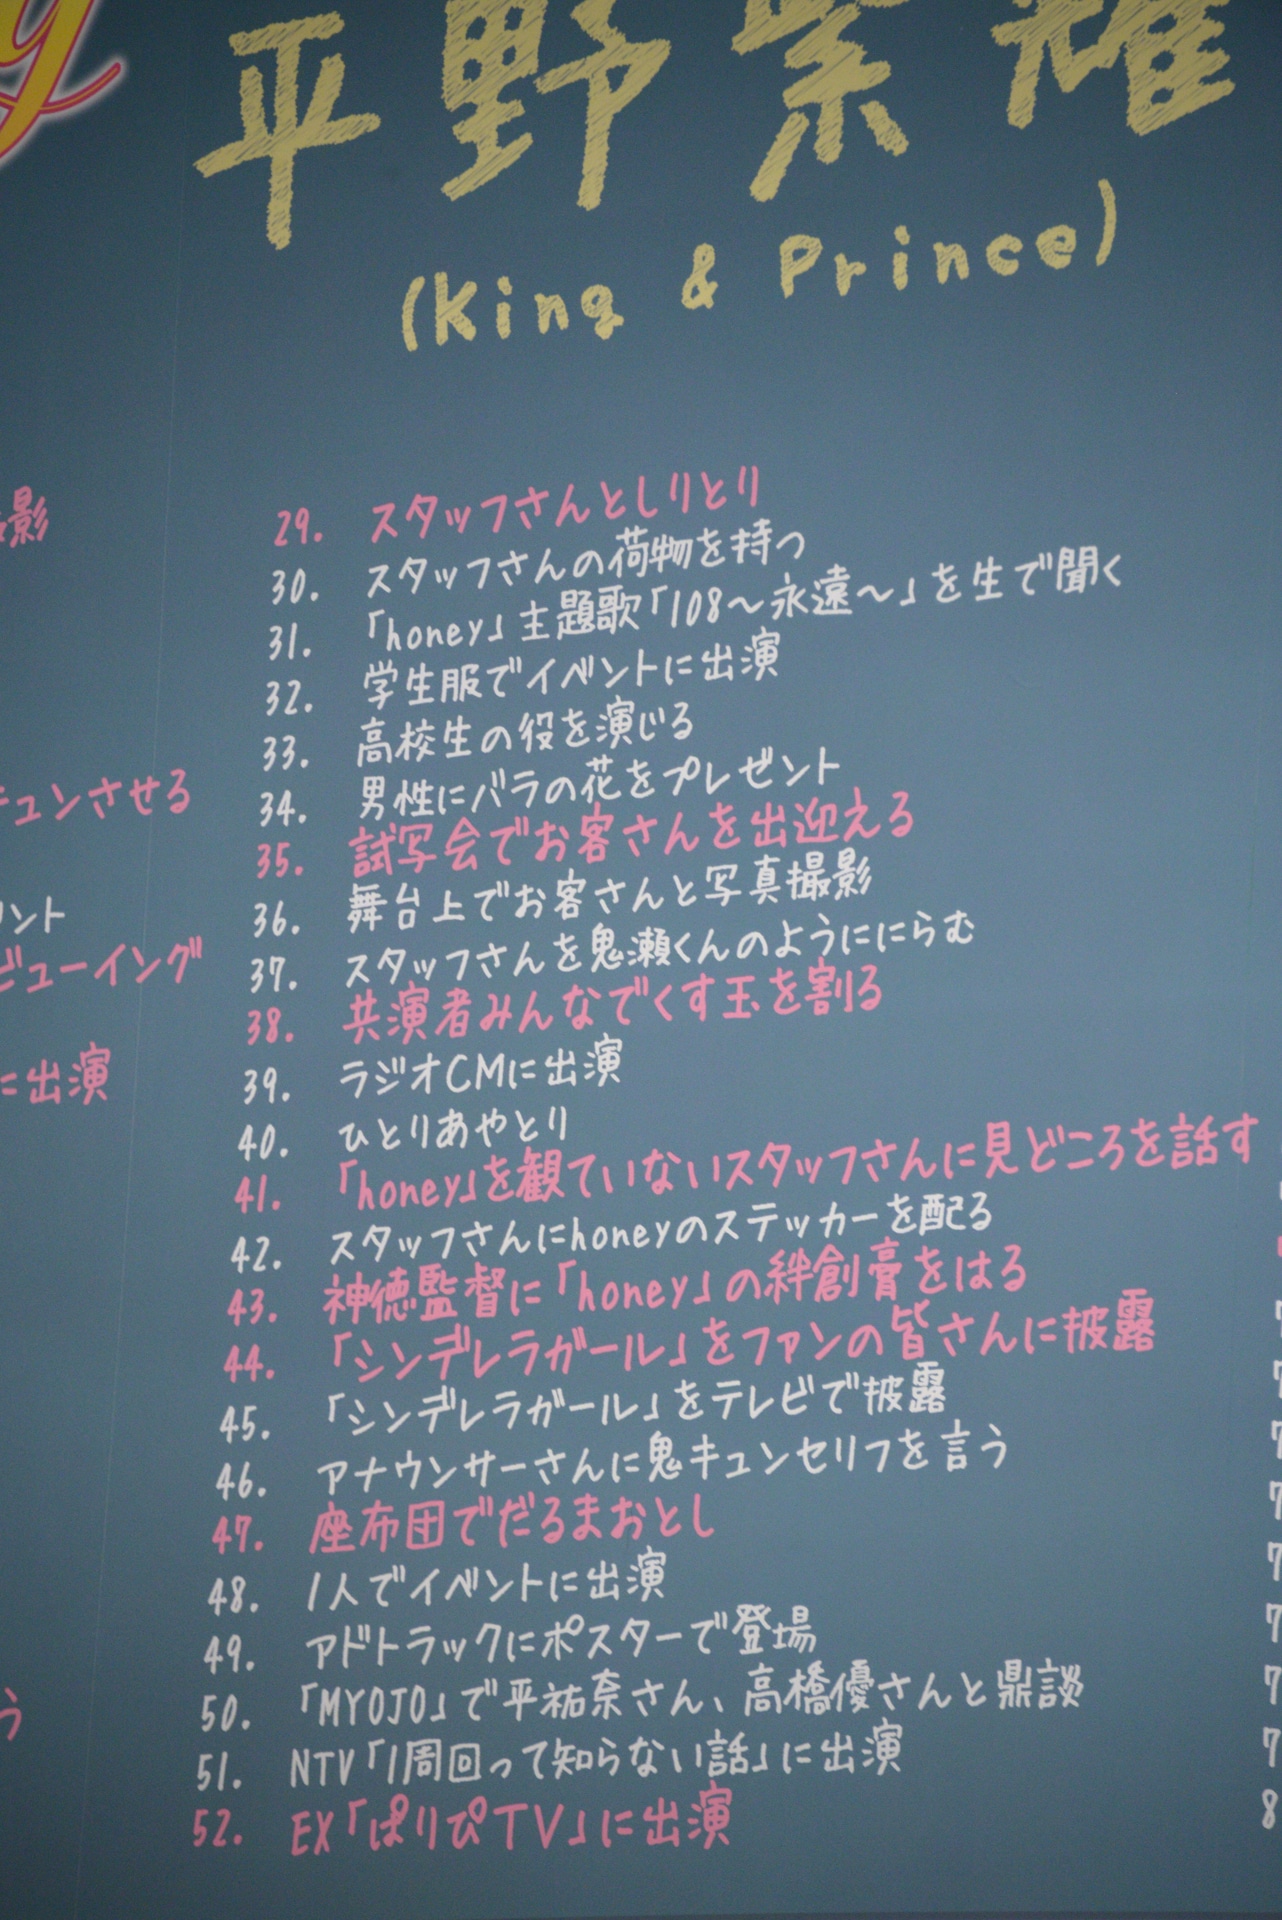 平野紫耀
(King & Prince)
影
キュンさせる
ント
ビューイング
に出演
う
29. スタッフさんとしりとり
30. スタッフさんの荷物を持つ
31. 「honey」主題歌「108～永遠～」を生で聞く
32. 学生服でイベントに出演
33. 高校生の役を演じる
34. 男性にバラの花をプレゼント
35. 試写会でお客さんを出迎える
36. 舞台上でお客さんと写真撮影
37. スタッフさんを鬼瀬くんのようににらむ
38. 共演者みんなでくす玉を割る
39. ラジオCMに出演
40. ひとりあやとり
41. 「honey」を観ていないスタッフさんに見どころを話す
42. スタッフさんにhoneyのステッカーを配る
43. 神徳監督に「honey」の絆創膏をはる
44. 「シンデレラガール」をファンの皆さんに披露
45. 「シンデレラガール」をテレビで披露
46. アナウンサーさんに鬼キュンセリフを言う
47. 座布団でだるまおとし
48. 1人でイベントに出演
49. アドトラックにポスターで登場
50. 「MYOJO」で平祐奈さん、高橋優さんと鼎談
51. NTV「1周回って知らない話」に出演
52. EX「ぱりぴTV」に出演